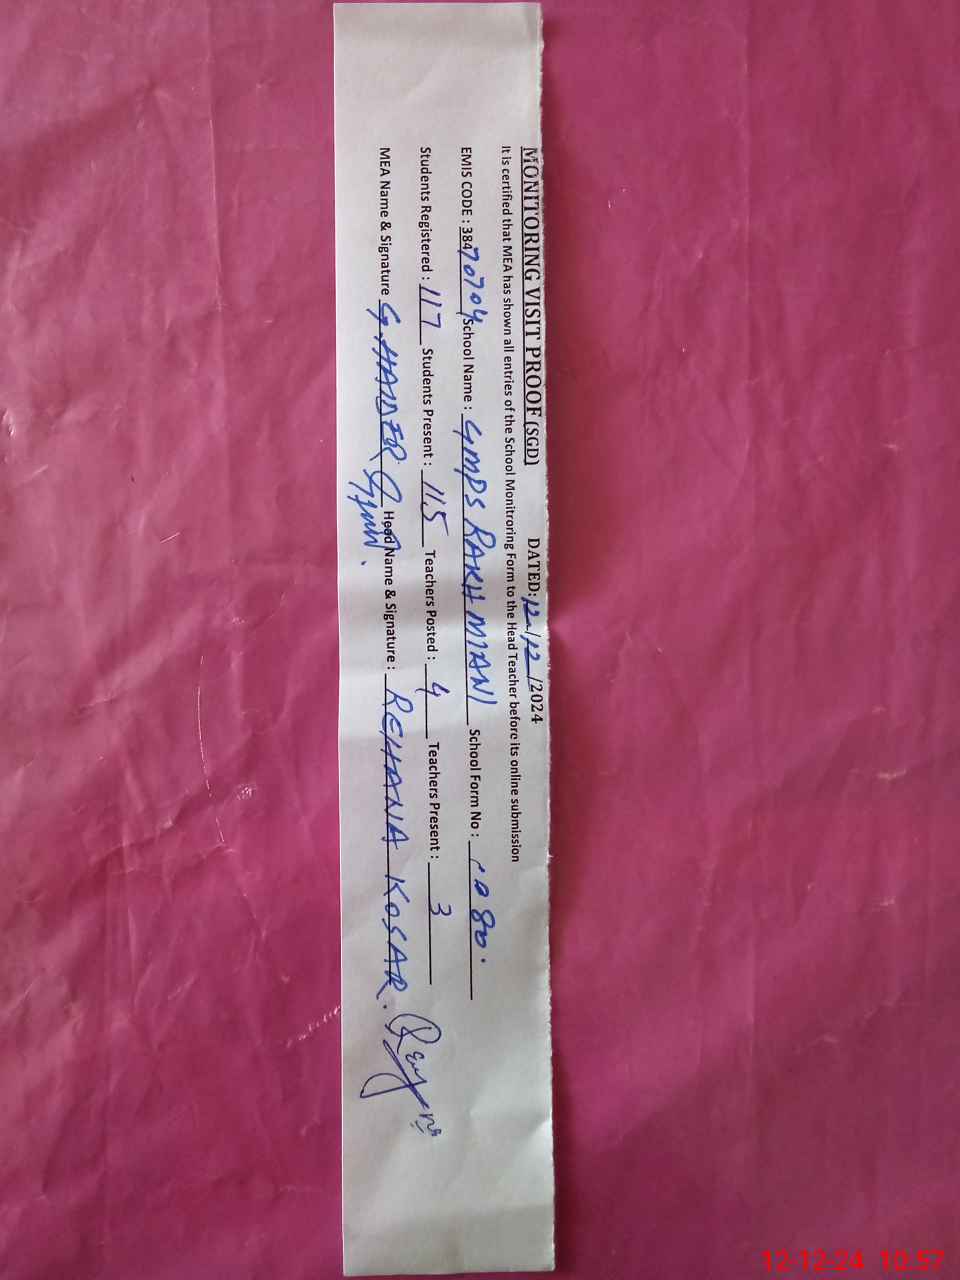 MONITORING VISIT PROOF (SGD) DATED: 12/12/2024
It is certified that MEA has shown all entries of the School Monitroring Form to the Head Teacher before its online submission
EMIS CODE : 38470704 School Name : GMPS RAKH MIANI School Form No : 1080.
Students Registered : 117 Students Present : 115 Teachers Posted : 4 Teachers Present : 3
MEA Name & Signature G. HAIDER Head Name & Signature : REHANA KOSAR.
12-12-24 10:57